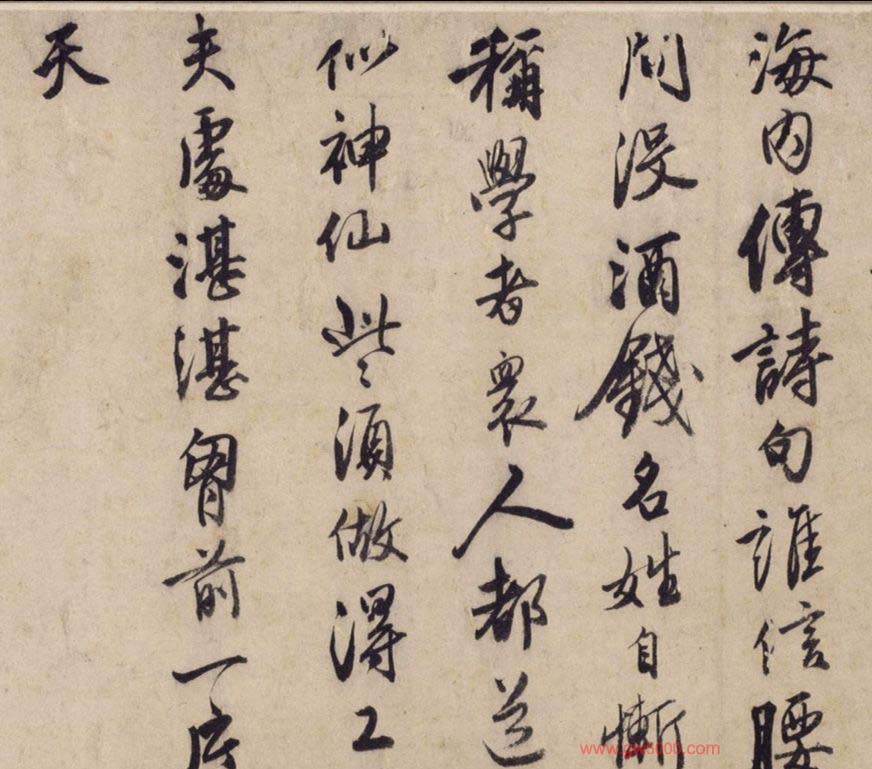 海内傳詩句誰信腰
間没酒錢名姓自慚
稱學者衆人都道
似神仙些須做得工
夫處湛湛胷前一片
天